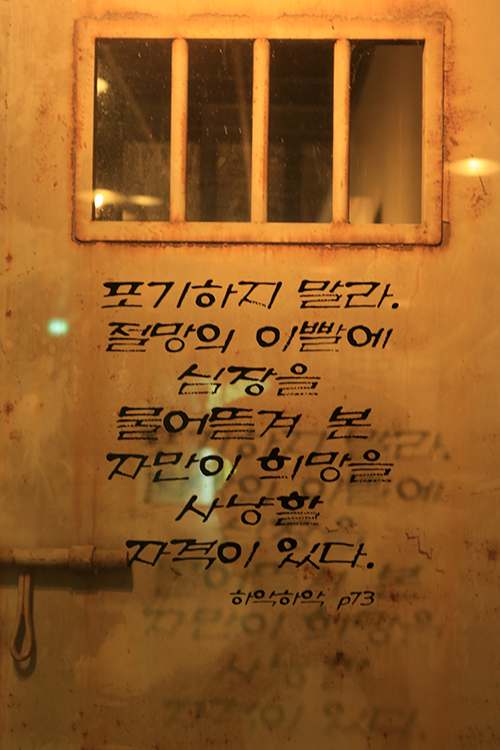 포기하지 말라.
절망의 이빨에
심장을
물어뜯겨 본
자만이 희망을
사냥할
자격이 있다.
하악하악 p73